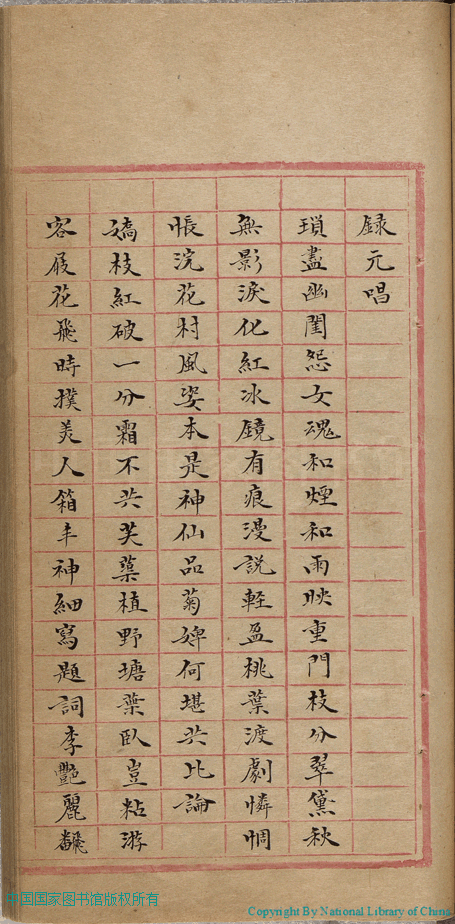 録元唱
瑣盡幽閨怨女魂和煙和雨映重門枝分翠黛秋
無影淚化紅冰鏡有痕漫說輕盈桃葉渡劇憐惆
悵浣花村風姿本是神仙品菊婢何堪共比論
嬌枝紅破一分霜不共芙蕖植野塘葉臥豈粘游
客屐花飛時撲美人箱丰神細寫題詞李艷麗飜
中国国家图书馆版权所有
Copyright By National Library of China